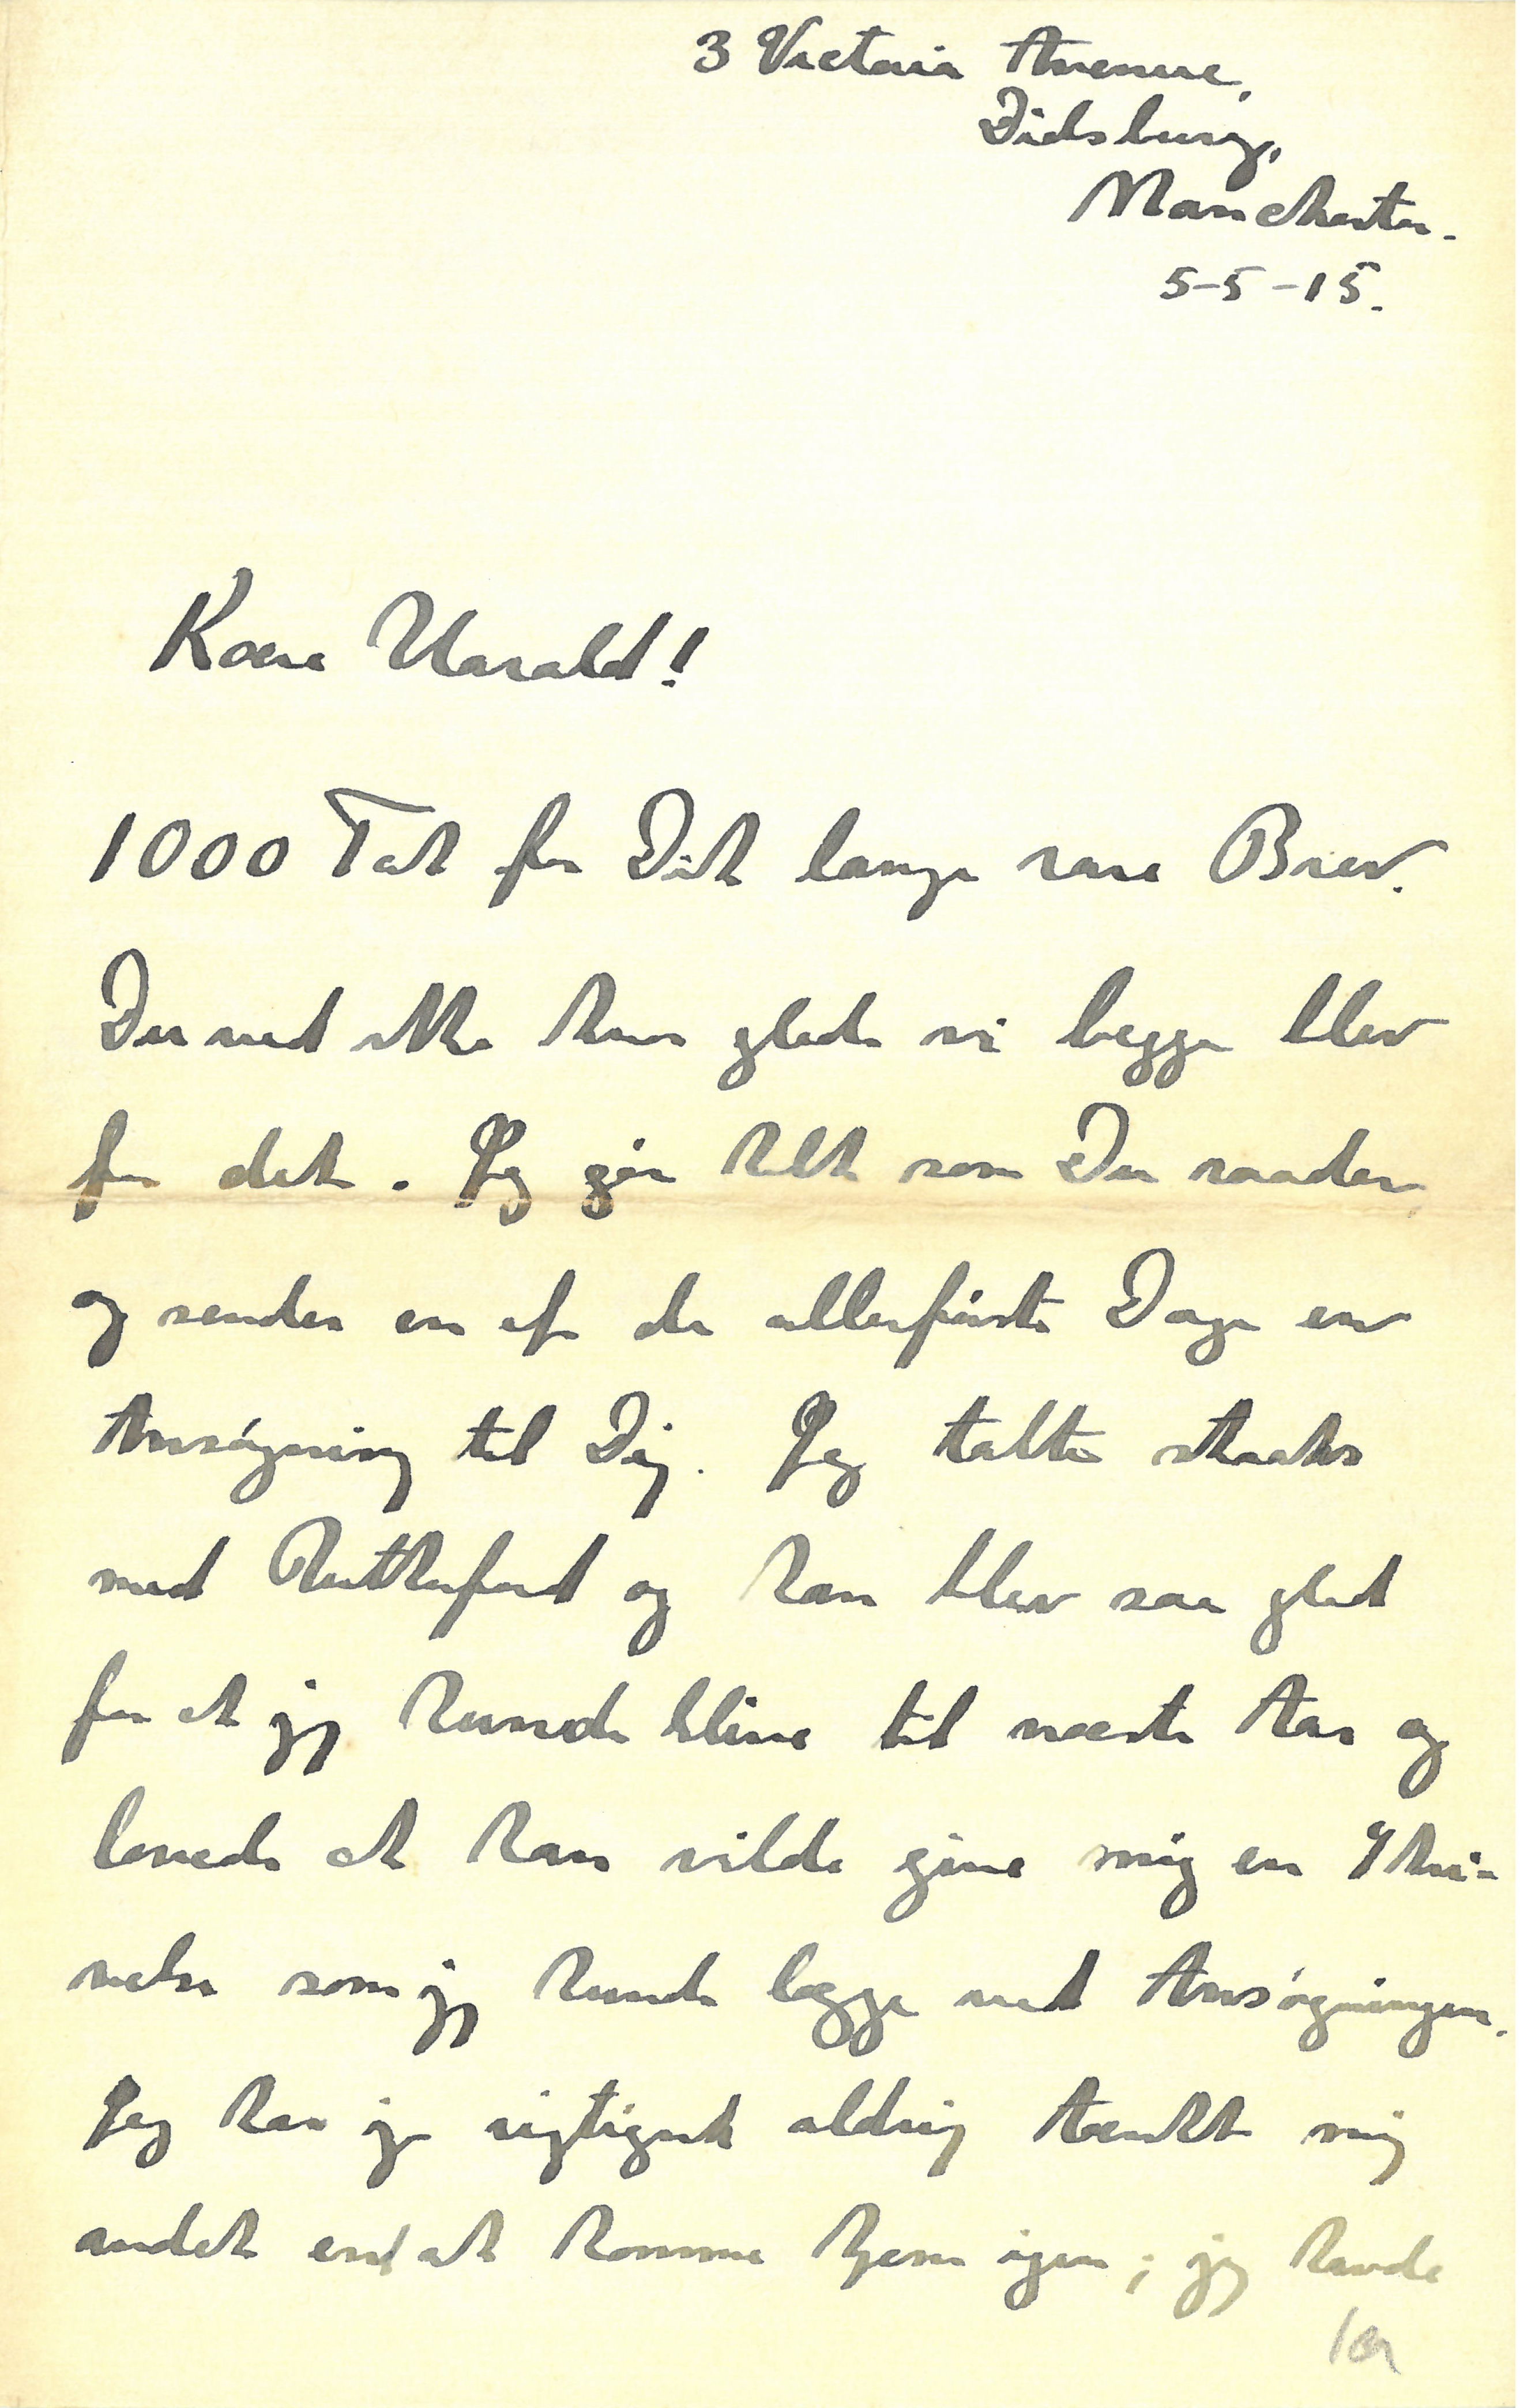 3 Victoria Avenue,
Didsbury,
Manchester.
5-5-15.
Kære Harald!
1000 Tak for Dit lange rare Brev.
Du ved ikke hvor glade vi begge blev
for det. Jeg gør helt som Du raader,
og sender en af de allerførste Dage en
Ansøgning til Dig. Jeg talte straks
med Rutherford og han blev saa glad
for at jeg kunde blive til næste Aar og
lovede at han vilde give mig en Skri-
velse som jeg kunde lægge ved Ansøgningen.
Jeg har jo rigtignok aldrig tænkt mig
andet end at komme hjem igen; jeg havde
1a